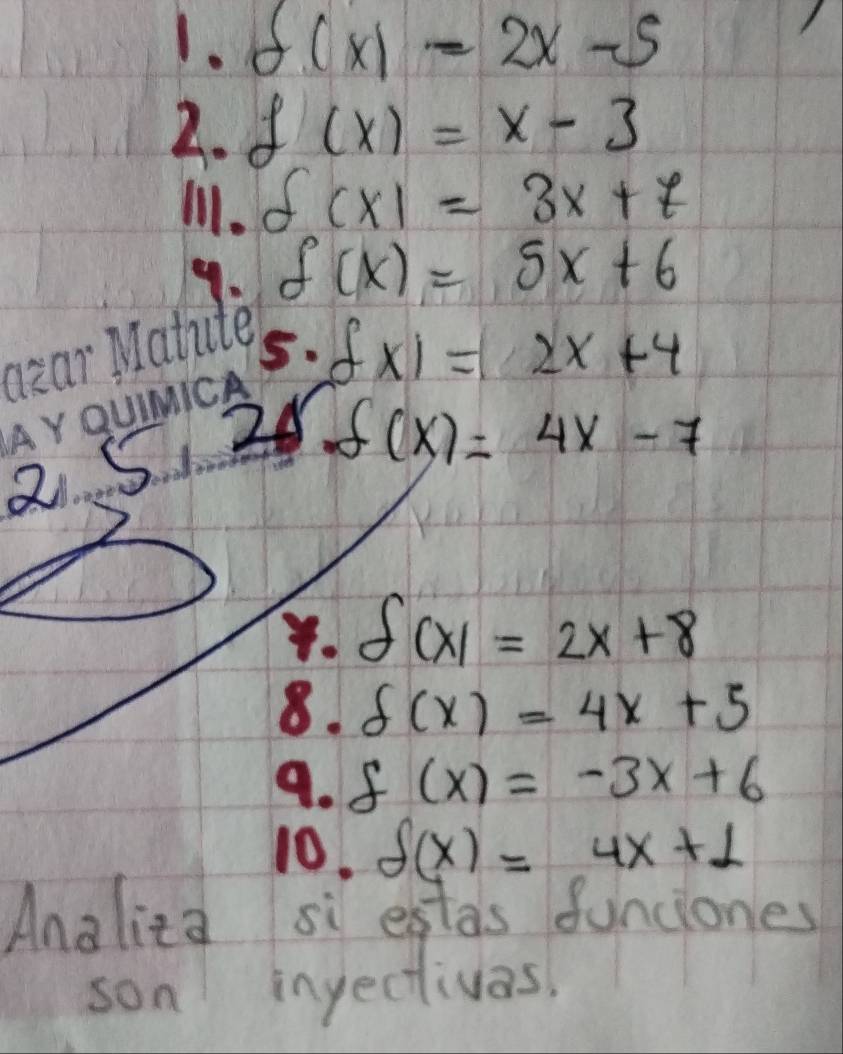 1. f(x) = 2x - 5
2. f (x) = x - 3
III. f(x) = 3x + 7
4. f(x) = 5x + 6
azar Matute
5. f x) = 2x + 4
A Y QUIMICA
2 5 25
. f(x) = 4x - 7
7. f(x) = 2x + 8
8. f(x) = 4x + 5
9. f (x) = -3x + 6
10. f(x) = 4x + 1
Analiza si estas funciones
son inyectivas.